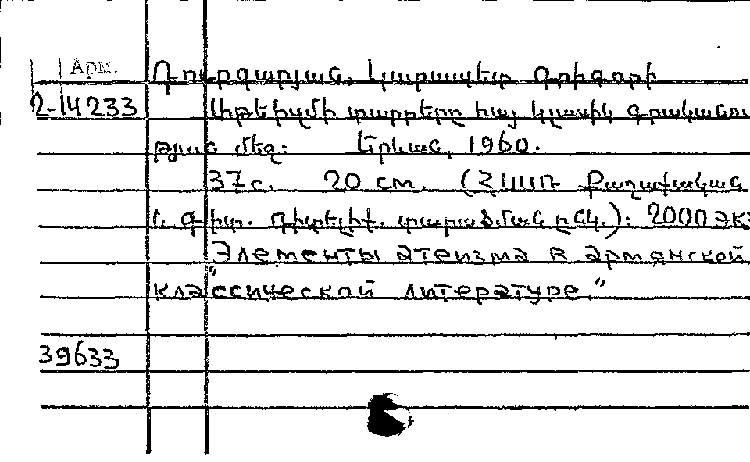 Арм.
Դուրգարյան, Կարապետ Գրիգորի
2-14233
Աթեիզմի տարրերը հայ կլասիկ գրականու
թյան մեջ: Երևան, 1960.
37 с. 20 см. (ՀՍՍՌ Քաղաքական
և գիտ. գիտելիք. տարածման ընկ.): 2000 экз
"Элементы атеизма в армянской
классической литературе."
39633